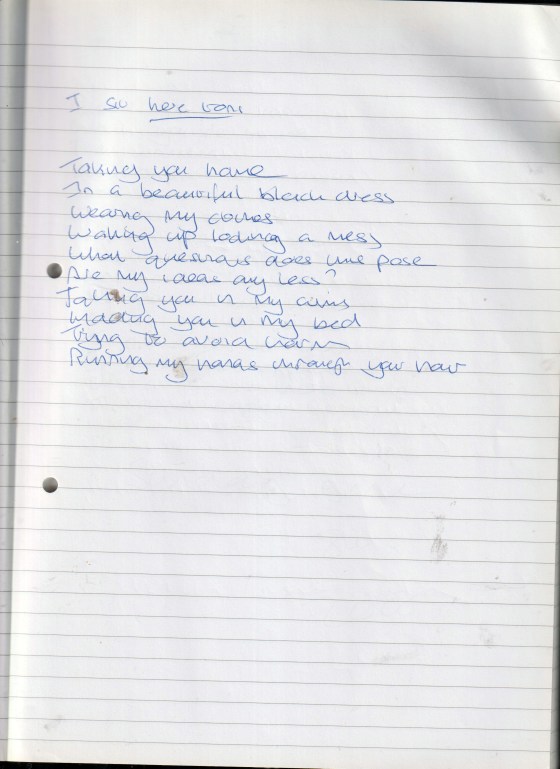 I sit here
Taking you home
In a beautiful black dress
Wearing my clothes
Waking up looking a mess
What questions does pose
Are my ideas any less?
Taking you in my arms
you in my bed
Trying to avoid harm
Running my hands through your hair